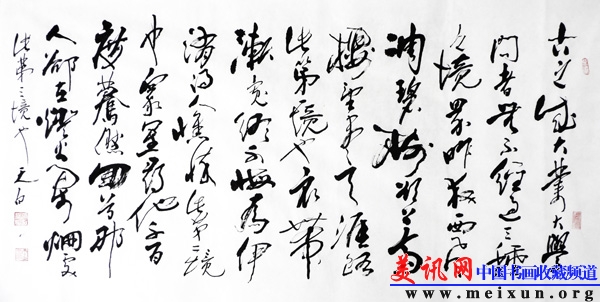 古之成大業大學
問者無不經過三種
之境界昨夜西風
凋碧樹獨上高
樓望盡天涯路
此第一境也衣帶
漸寬終不悔為伊
消得人憔悴此第二境
也眾里尋他千百
度驀然回首那
人卻在燈火闌珊處
此第三境也
美讯网 中国书画收藏频道
www.meixun.org